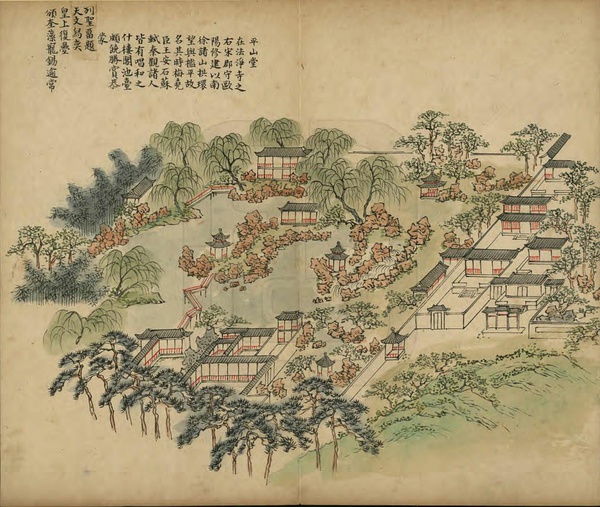 平山堂
在法淨寺之
右宋郡守歐
陽修建以南
徐諸山拱環
望與檻平故
名其時梅堯
臣王安石蘇
軾秦觀諸人
皆有唱和之
什樓閣池臺
頗饒勝賞恭
蒙
列聖畱題
天文奐
皇上復疊
頒奎藻寵錫逾常